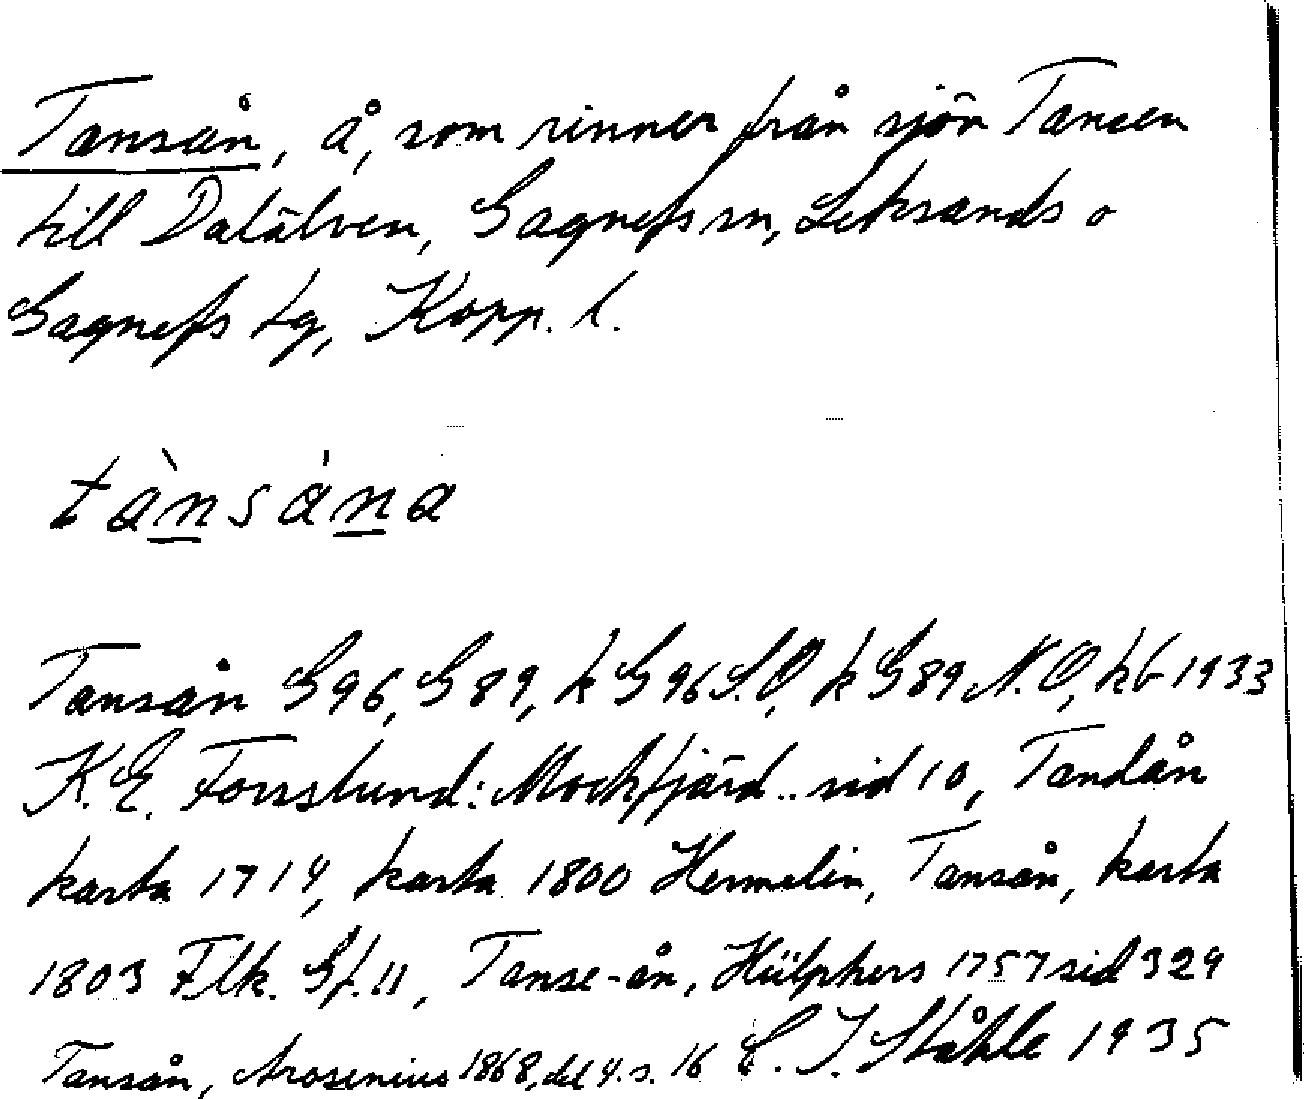 Tansån, å, som rinner från sjön Tansen
till Dalälven, Gagnefs sn, Leksands o
Gagnefs tg, Kopp. l.
tànsána
Tansån G96, G89, k G96 S.O, k G89 N.O, kb 1933
K.E. Forsslund: Mockfjärd .. sid 10, Tandån
karta 1714, karta 1800 Hermelin, Tansån, karta
1803 Flk. Gf. 11, Tanse-ån, Hülphers 1757 sid 329
Tansån, Arosenius 1868, del 4. s. 16 C. I. Ståhle 1935